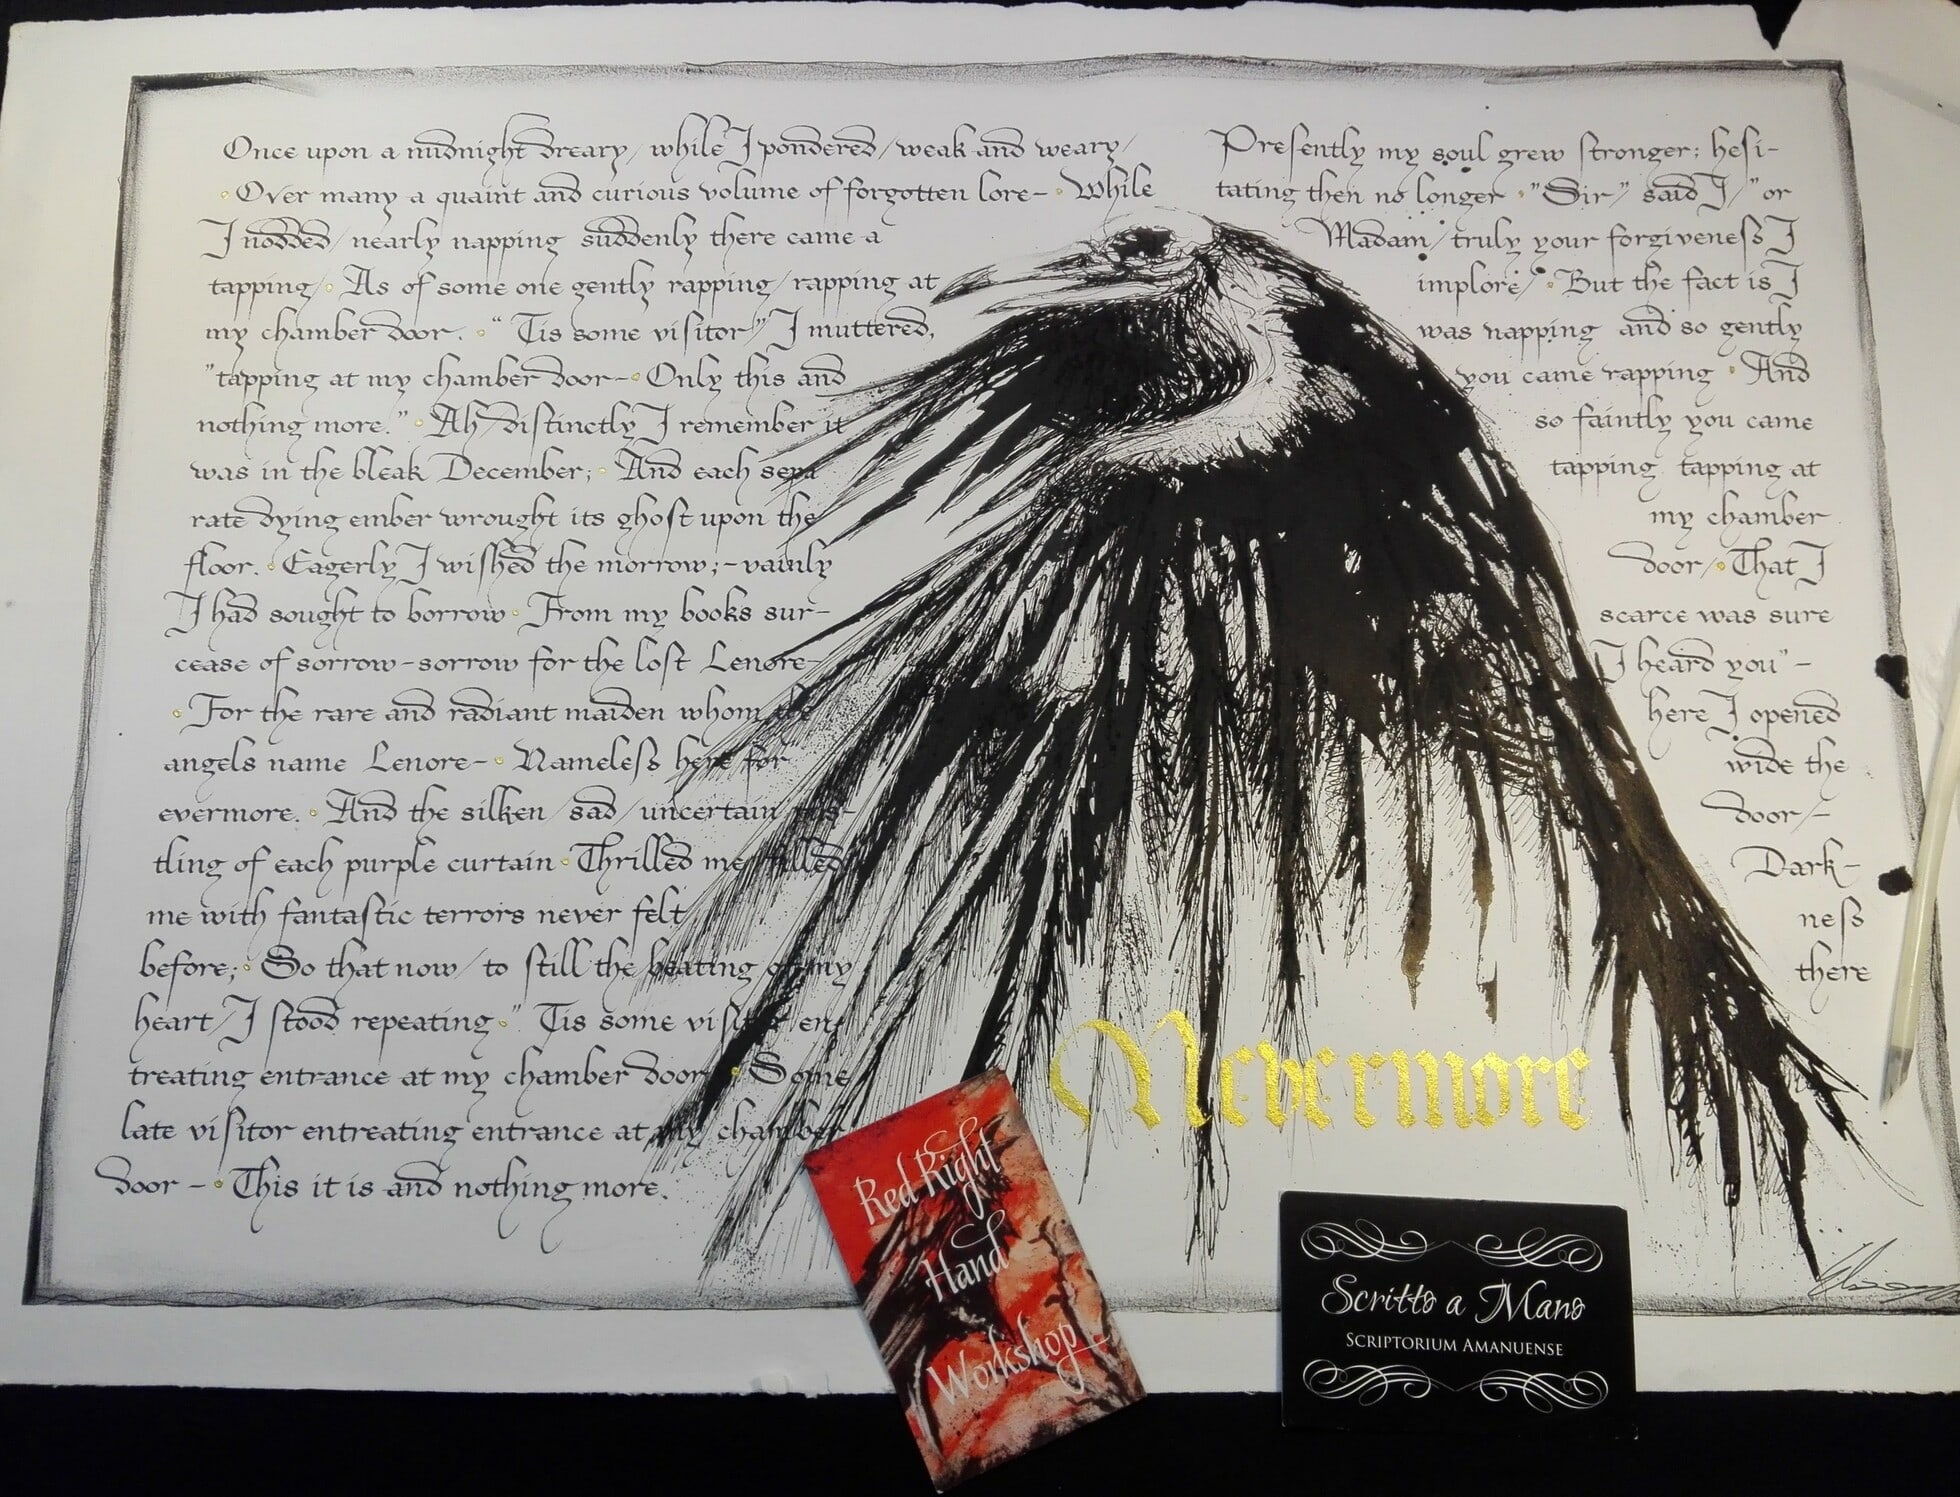 Once upon a midnight dreary, while I pondered, weak and weary,
· Over many a quaint and curious volume of forgotten lore- · While
I nodded, nearly napping suddenly there came a
tapping, · As of some one gently rapping, rapping at
my chamber door. · “ Tis some visitor” I muttered,
"tapping at my chamber door- · Only this and
nothing more.” · Ah, distinctly I remember it
was in the bleak December; · And each sepa
rate dying ember wrought its ghost upon the
floor. · Eagerly I wished the morrow; - vainly
I had sought to borrow · From my books sur-
cease of sorrow-sorrow for the lost Lenore-
· For the rare and radiant maiden whom the
angels name Lenore- · Nameless here for
evermore. · And the silken, sad, uncertain rus-
tling of each purple curtain · Thrilled me, filled
me with fantastic terrors never felt
before; · So that now, to still the beating of my
heart, I stood repeating · " Tis some visitor en-
treating entrance at my chamber door · Some
late visitor entreating entrance at my chamber
door - · This it is and nothing more.
Presently my soul grew stronger; hesi-
tating then no longer · "Sir," said I, "or
Madam, truly your forgiveness I
implore; · But the fact is I
was napping and so gently
you came rapping · And
so faintly you came
tapping tapping at
my chamber
door, · That I
scarce was sure
I heard you" -
here I opened
wide the
door, -
Dark-
ness
there
Nevermore
Red Right
Hand
Workshop
Scritto a Mano
SCRIPTORIUM AMANUENSE